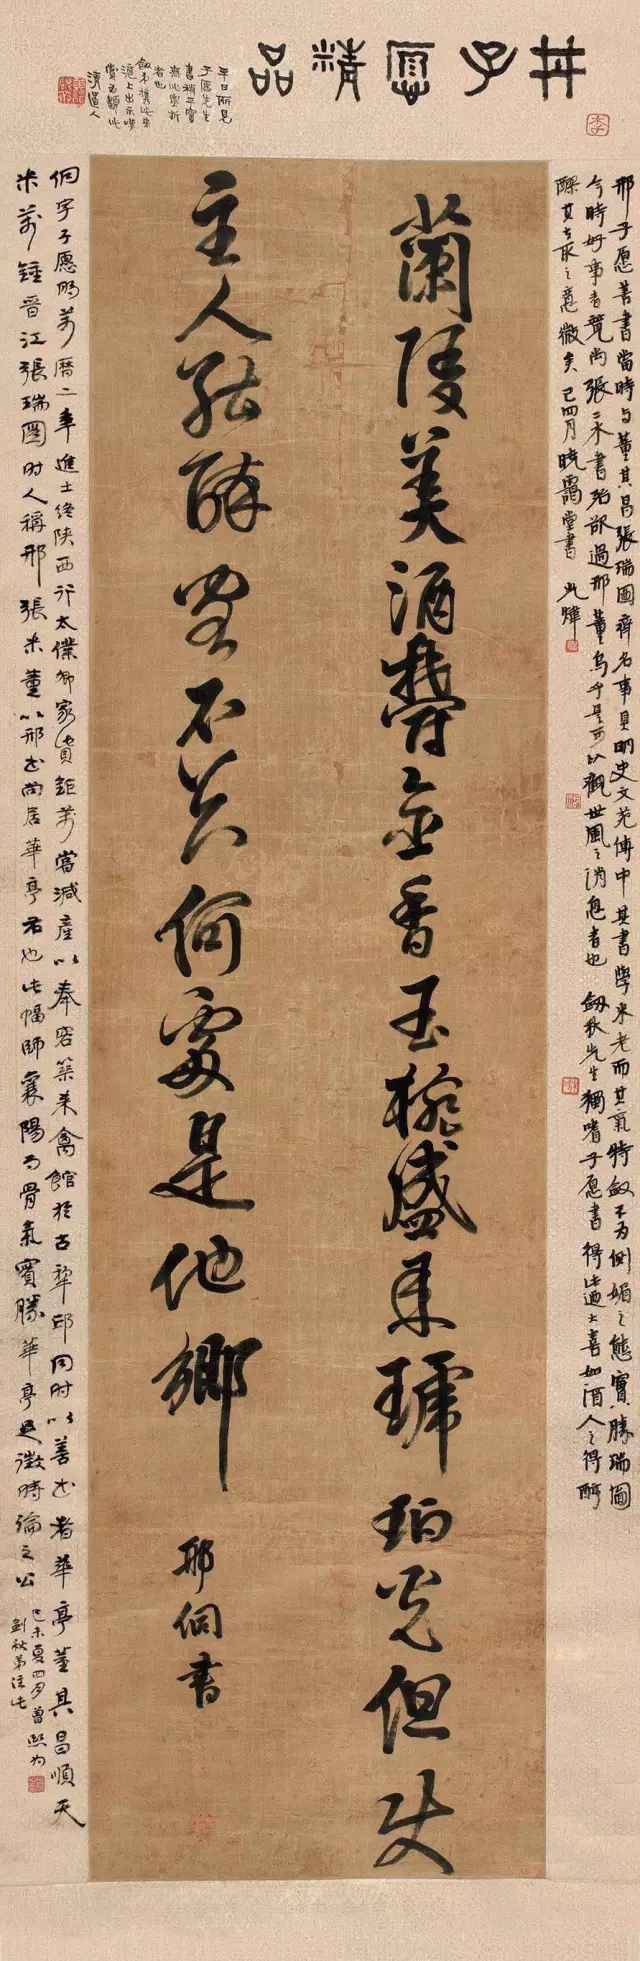 丼子愿精品
平日所見
子愿先生
書稍平實
無此奧折
者也
劍秋弟攜此来
滬上出示嘆
賞為題此
清道人
邢子愿善書當時与董其昌張瑞圖齊名事具明史文苑傳中其書學米老而其氣特斂不为側媚之態實勝瑞圖
今時好事者競尚張二水書殆欲過邢董烏乎是可以觀世風之消息者也 劒秋先生獨嗜子愿書得此大喜如酒人之得醇
醪其去取之意微矣 己四月 堂書 光煒
蘭陵美酒鬱金香玉椀盛来琥珀光但使
主人能醉客不知何處是他鄉 邢侗書
侗字子愿明萬曆二年進士终陕西行太僕卿家資鉅萬嘗減產以奉客築来禽館於古犂邱同时以善书者華亭董其昌順天
米萬鍾晉江張瑞圖时人稱邢張米董以邢书尚居華亭右也此幅師襄陽而骨氣實勝華亭足徵時論之公
己未夏四月曾熙为
劍秋弟注此